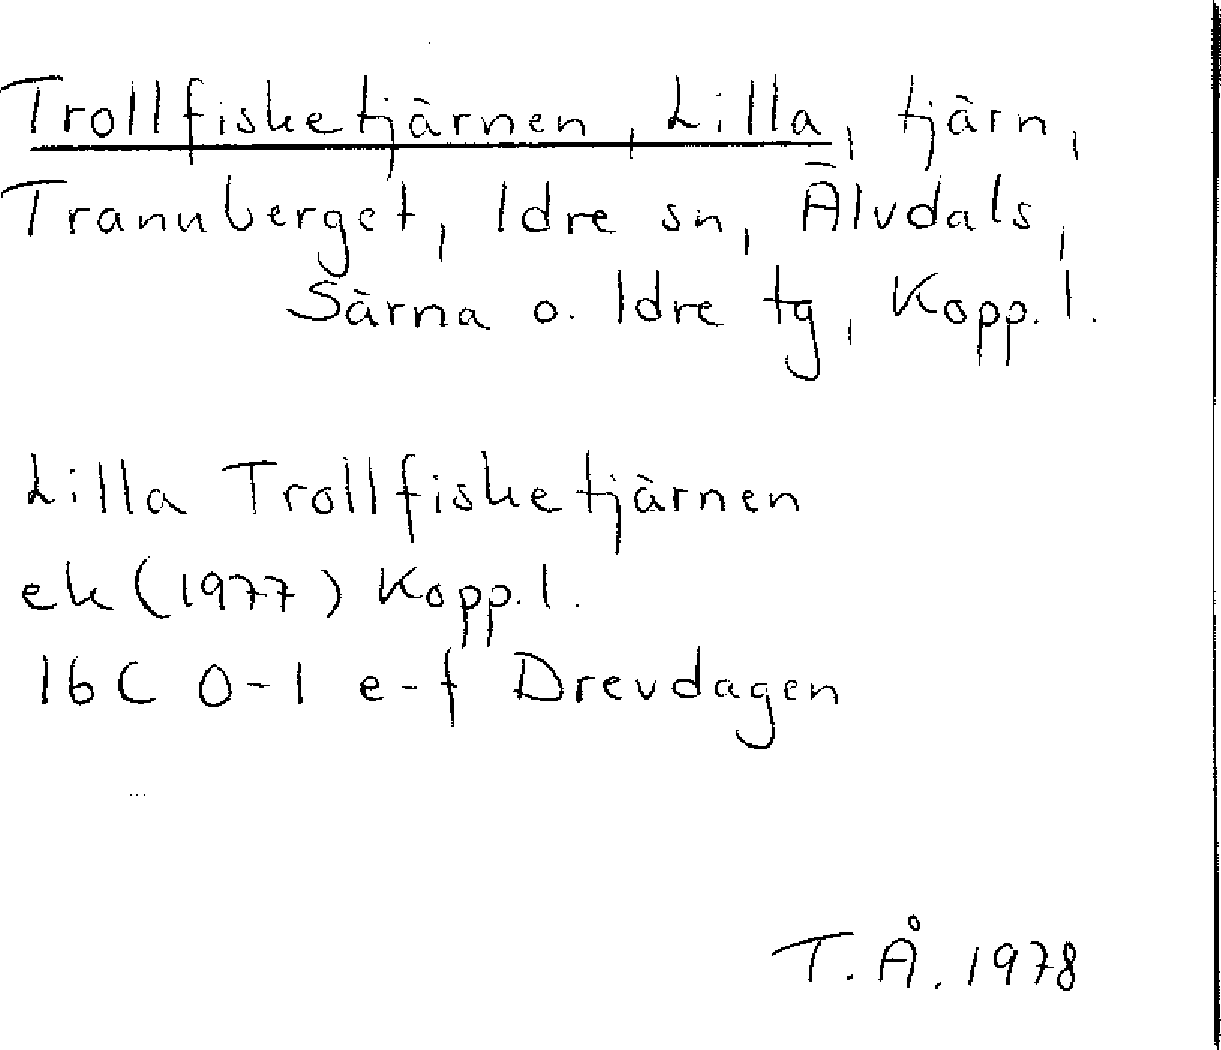 Trollfisketjärnen, Lilla, tjärn,
Trannberget, Idre sn, Älvdals,
Särna o. Idre tg, Kopp. l.
Lilla Trollfisketjärnen
ek (1977) Kopp. l.
16C 0-1 e-f Drevdagen
T. Å. 1978